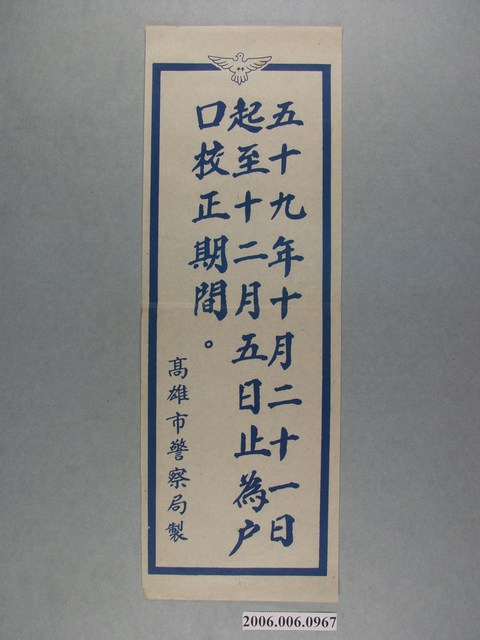 五十九年十月二十一日
起至十二月五日止為户
口校正期間。
高雄市警察局製
2006.006.0967